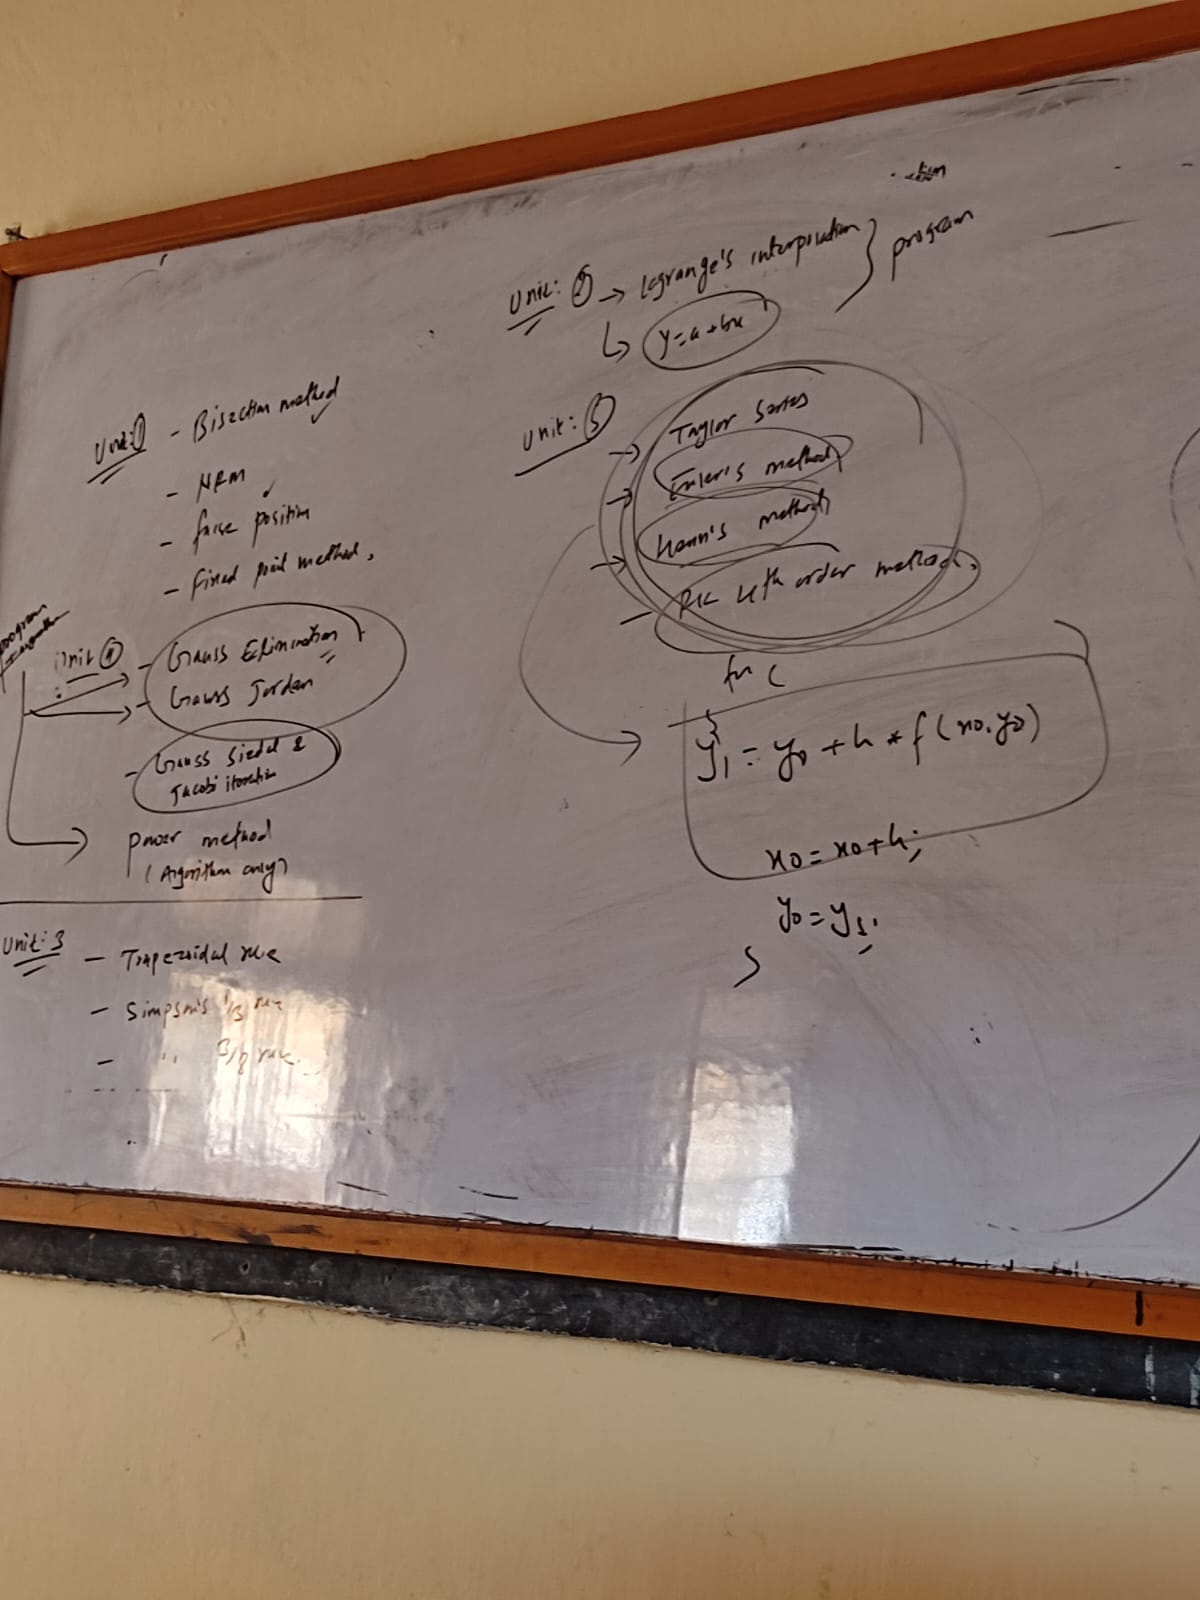 Unit: 1 - Bisection method
- NRM
- false position
- Fixed point method,
program
Unit 4 - Gauss Elimination
- Gauss Jordan
- Gauss Siedal &
Jacobi iteration
power method
(Algorithm only)
Unit: 3 - Trapezoidal rule
- Simpson's 1/3 rule
- " 3/8 rule
Unit: 2 → Lagrange's interpolation } program
↳ y=a+bx
Unit: 5
→ Taylor Series
→ Euler's method
→ Heun's method
- RK 4th order method,
for (
{
y1 = y0 + h * f(x0,y0)
x0 = x0+h;
y0 = y1;
}